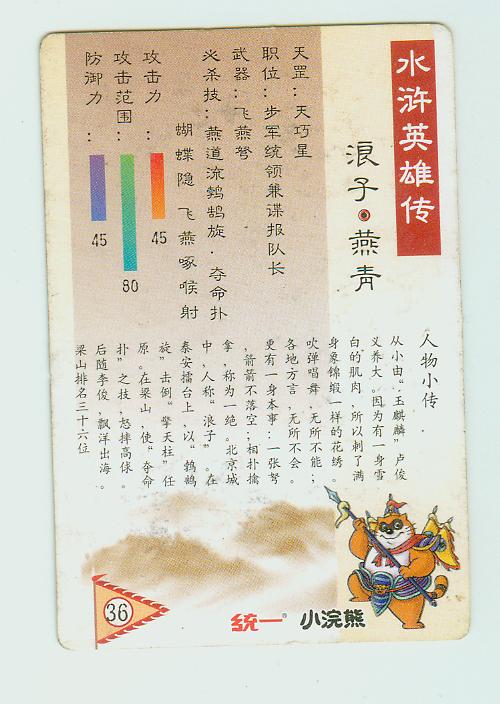 水浒英雄传
浪子·燕青
天罡：天巧星
职位：步军统领兼谍报队长
武器：飞燕弩
必杀技：燕道流鹩鸪旋·夺命扑
蝴蝶隐 飞燕啄喉射
攻击力：
45
攻击范围：
80
防御力：
45
人物小传：
从小由“玉麒麟”卢俊
义养大。因为有一身雪
白的肌肉，所以刺了满
身象锦缎一样的花绣。
吹弹唱舞，无所不能；
各地方言，无所不会。
更有一身本事：一张弩
，箭箭不落空；相扑擒
拿，称为一绝。北京城
中，人称“浪子”。在
泰安擂台上，以“鹁鸪
旋”击倒“擎天柱”任
原。在梁山，使“夺命
扑”之技，怒摔高俅。
后随李俊，飘洋出海。
梁山排名三十六位
36
统一® 小浣熊